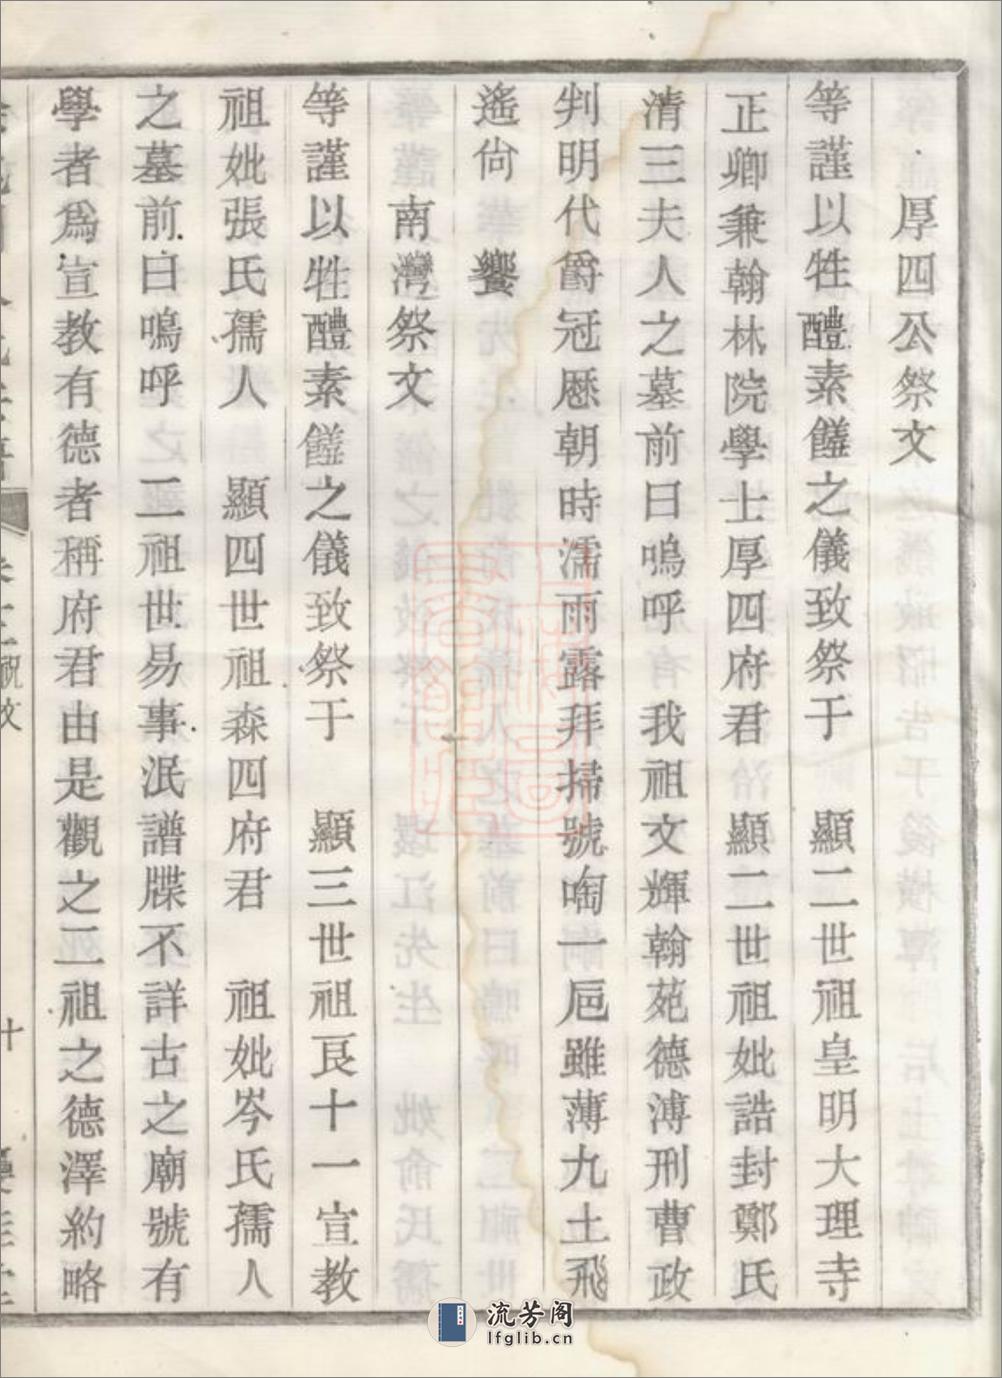 厚四公祭文
等謹以牲醴素饈之儀致祭于　顯二世祖皇明大理寺
正卿兼翰林院學士厚四府君　顯二世祖妣誥封鄭氏
清三夫人之墓前曰嗚呼　我祖文輝翰苑德溥刑曹政
判明代爵冠歷朝時濡雨露拜掃號啕一巵雖薄九土飛
遙尙　饗
南灣祭文
等謹以牲醴素饈之儀致祭于　顯三世祖艮十一宣教
祖妣張氏孺人　顯四世祖森四府君　祖妣岑氏孺人
之墓前曰嗚呼　二祖世易事泯譜牒不詳古之廟號有
學者爲宣教有德者稱府君由是觀之二祖之德澤約略
祝文
十
流芳阁
lfglib.cn